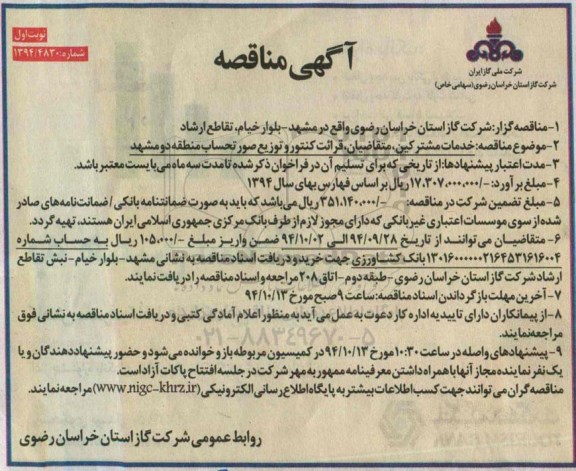 نوبت اول
شماره: ۱۳۹۴/۴۸۳۰
شرکت ملی گاز ایران
شرکت گاز استان خراسان رضوی (سهامی خاص)
آگهی مناقصه
۱- مناقصه گزار: شرکت گاز استان خراسان رضوی واقع در مشهد- بلوار خیام، تقاطع ارشاد
۲- موضوع مناقصه: خدمات مشترکین، متقاضیان، قرائت کنتور و توزیع صورتحساب منطقه دو مشهد
۳- مدت اعتبار پیشنهادها: از تاریخی که برای تسلیم آن در فراخوان ذکر شده تا مدت سه ماه می بایست معتبر باشد.
۴- مبلغ برآورد: /۱۷.۳۰۷.۰۰۰.۰۰۰- ریال بر اساس فهارس بهای سال ۱۳۹۴
۵- مبلغ تضمین شرکت در مناقصه: /۳۵۱.۱۴۰.۰۰۰- ریال می باشد که باید به صورت ضمانتنامه بانکی / ضمانت نامه های صادر
شده از سوی موسسات اعتباری غیر بانکی که دارای مجوز لازم از طرف بانک مرکزی جمهوری اسلامی ایران هستند، تهیه گردد.
۶- متقاضیان می توانند از تاریخ ۹۴/۰۹/۲۸ الی ۹۴/۱۰/۰۲ ضمن واریز مبلغ /۱۰۵.۰۰۰- ریال به حساب شماره
۱۳۰۱۶۰۰۰۰۰۰۲۱۶۴۵۳۱۶۱۶۰۰۴ بانک کشاورزی جهت خرید و دریافت اسناد مناقصه به نشانی مشهد- بلوار خیام- نبش تقاطع
ارشاد شرکت گاز استان خراسان رضوی - طبقه دوم- اتاق ۲۰۸ مراجعه و اسناد مناقصه را دریافت نمایند.
۷- آخرین مهلت بازگرداندن اسناد مناقصه: ساعت ۹ صبح مورخ ۹۴/۱۰/۱۳
۸- از پیمانکاران دارای تاییدیه اداره کار دعوت به عمل می آید به منظور اعلام آمادگی کتبی و دریافت اسناد مناقصه به نشانی فوق
مراجعه نمایند.
۹- پیشنهادهای واصله در ساعت ۱۰:۳۰ مورخ ۹۴/۱۰/۱۳ در کمیسیون مربوطه باز و خوانده می شود و حضور پیشنهاد دهندگان و یا
یک نفر نماینده مجاز آنها با همراه داشتن معرفینامه ممهور به مهر شرکت در جلسه افتتاح پاکات آزاد است.
مناقصه گران می توانند جهت کسب اطلاعات بیشتر به پایگاه اطلاع رسانی الکترونیکی (www.nigc-khrz.ir) مراجعه نمایند.
روابط عمومی شرکت گاز استان خراسان رضوی
۰۲۱-۸۸۳۴۹۶۷۰-۵